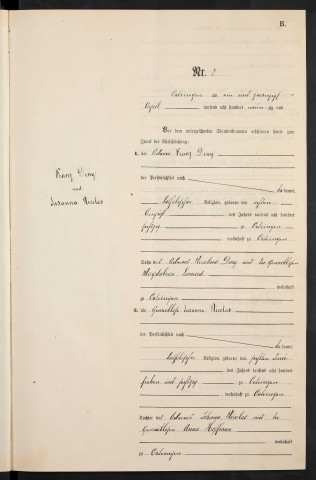 B.
Nr. 2
Oetringen am ein und zwanzigsten
April tausend acht hundert neunzig und
Vor dem unterzeichneten Standesbeamten erschienen heute zum
Zweck der Eheschließung:
1. der Ackerer Franz Deny
der Persönlichkeit nach
kannt,
katholischer Religion, geboren den
August des Jahres tausend acht hundert
fünfzig zu Oetringen
wohnhaft zu Oetringen
Franz Deny
und
Susanna Nicolas
Sohn des Ackerers Nicolaus Deny und der Gewerblosen
Magdalena
wohnhaft
zu Oetringen
2. die Gewerblose Susanna Nicolas
der Persönlichkeit nach
kannt,
katholischer Religion, geboren den sechsten Juni
des Jahres tausend acht hundert
sieben und fünfzig zu Oetringen
wohnhaft zu Oetringen
Tochter des Ackerers Johann Nicolas und der
Gewerblosen Anna Hoffmann
wohnhaft
zu Oetringen